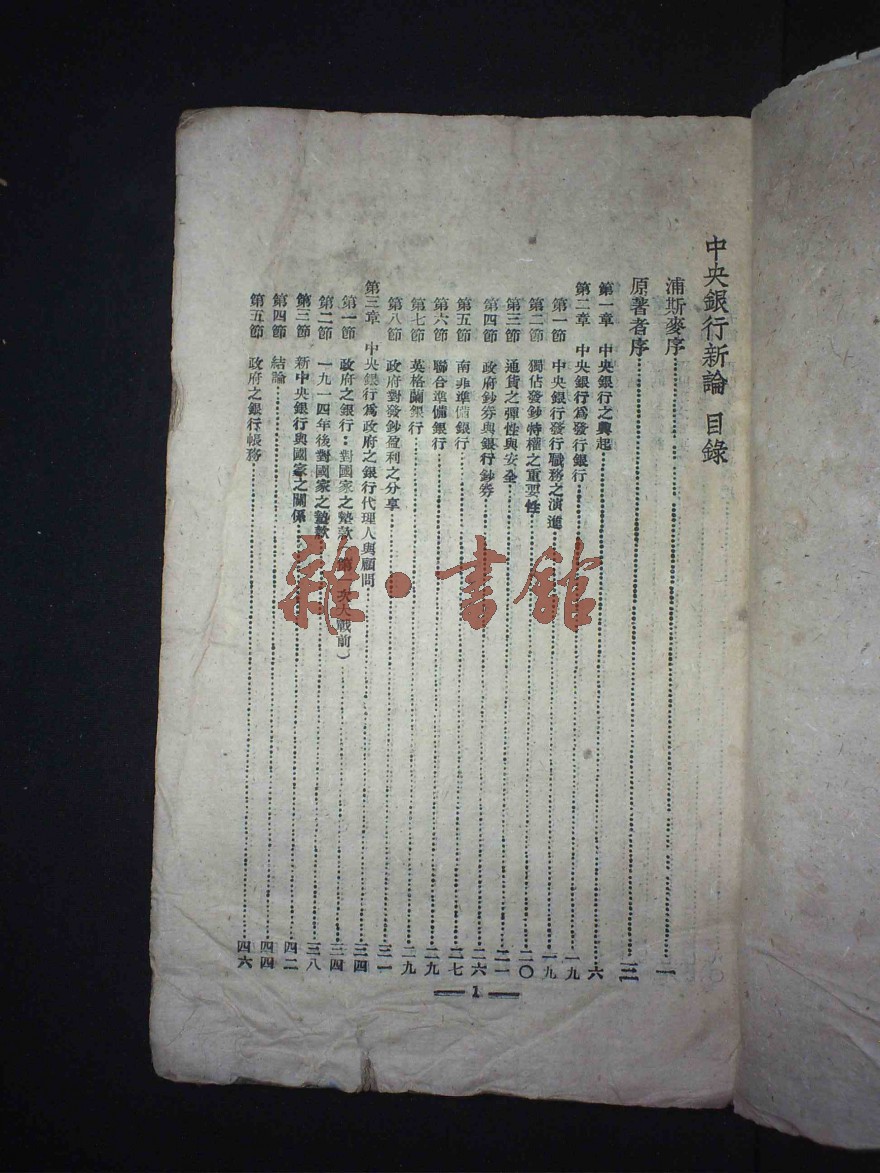 中央銀行新論 目錄
浦斯麥序……一
原著者序……三
第一章 中央銀行之興起……六
第二章 中央銀行爲發行銀行……一九
第一節 中央銀行發行職務之演進……一九
第二節 獨佔發鈔特權之重要性……二〇
第三節 通貨之彈性與安全……二一
第四節 政府鈔券與銀行鈔券……二六
第五節 南非準備銀行……二七
第六節 聯合準備銀行……二九
第七節 英格蘭銀行……二九
第八節 政府對發鈔盈利之分享……三一
第三章 中央銀行爲政府之銀行代理人與顧問……三四
第一節 政府之銀行：對國家之墊款（第一次大戰前）……三四
第二節 一九一四年後對國家之墊款……三八
第三節 新中央銀行與國家之關係……四二
第四節 結論……四四
第五節 政府之銀行帳務……四六
1
雜·書館